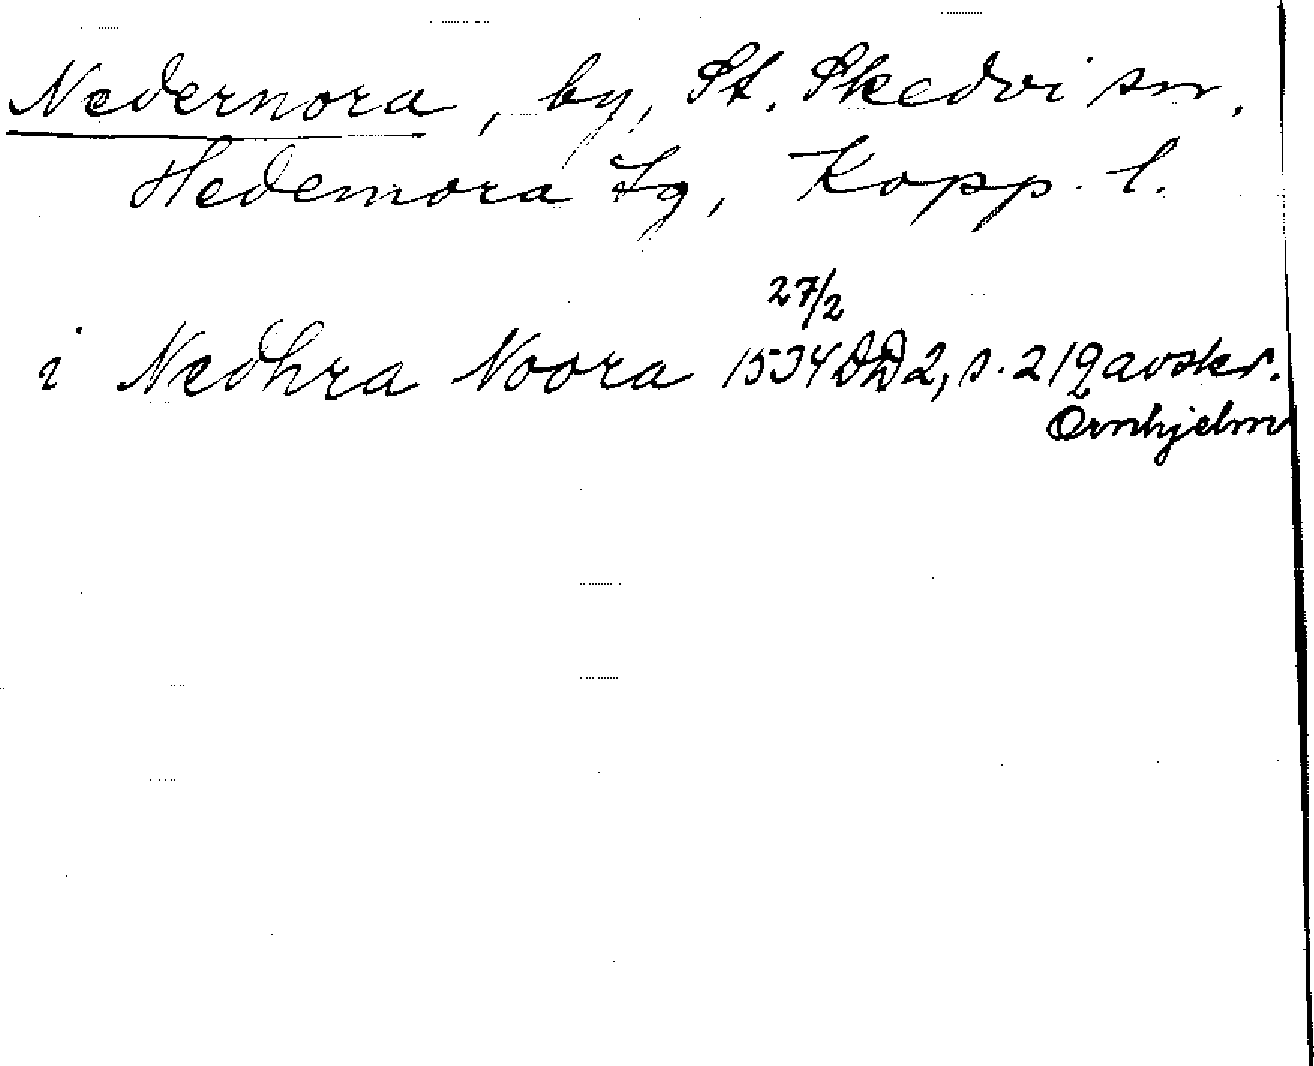 Nedernora, by, St. Skedvi sn.
Hedemora tg, Kopp. l.
27/2
i Nedhra Noora 1534 DD2, s. 219 avskr.
Örnhjelm